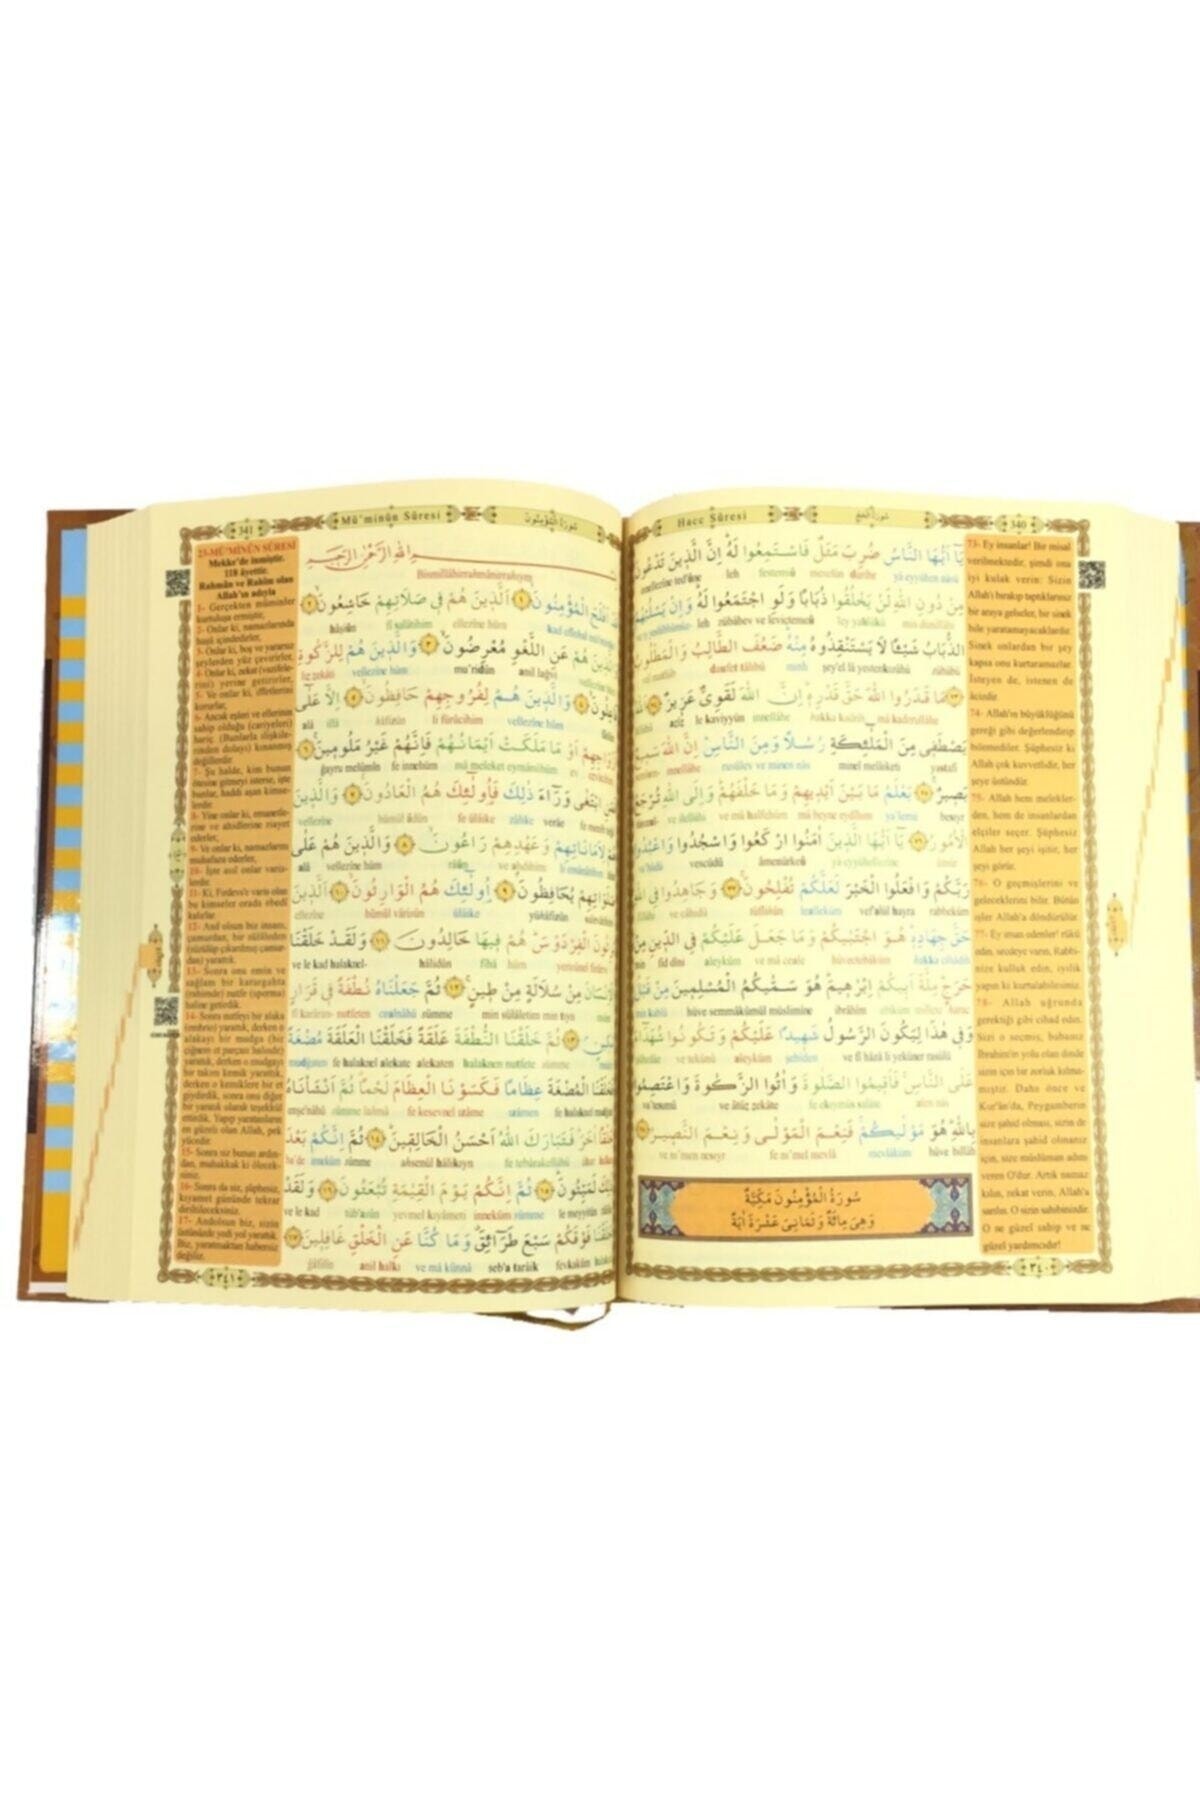 340
سُورَةُ الْحَجِّ
Hacc Sûresi
يَٓا اَيُّهَا النَّاسُ ضُرِبَ مَثَلٌ فَاسْتَمِعُوا لَهُ اِنَّ الَّذِينَ تَدْعُونَ
yâ eyyühen nâsü duribe meselün festemiû leh innellezîne ted'ûne
مِنْ دُونِ اللّٰهِ لَنْ يَخْلُقُوا ذُبَابًا وَلَوِ اجْتَمَعُوا لَهُ وَاِنْ يَسْلُبْهُمُ
min dunillâhi ley yahlükû zübâbev ve levictemeû leh
الذُّبَابُ شَيْـًٔا لَا يَسْتَنْقِذُوهُ مِنْهُ ضَعُفَ الطَّالِبُ وَالْمَطْلُوبُ
zübâbü şey'el lâ yestenkızûhü minh daufet tâlibü vel matlûb
مَا قَدَرُوا اللّٰهَ حَقَّ قَدْرِهِ اِنَّ اللّٰهَ لَقَوِيٌّ عَزِيزٌ اَللّٰهُ
mâ kaderullâhe hakka kadrih innellâhe le kaviyyün azîz
يَصْطَفِى مِنَ الْمَلٰٓئِكَةِ رُسُلًا وَمِنَ النَّاسِ اِنَّ اللّٰهَ سَمِيعٌ
yastafî minel melâiketi rusülev ve minen nâs innellâhe
بَصِيرٌ يَعْلَمُ مَا بَيْنَ اَيْدِيهِمْ وَمَا خَلْفَهُمْ وَاِلَى اللّٰهِ تُرْجَعُ
besıyr ya'lemü mâ beyne eydîhim ve mâ halfehüm ve ilellâhi
الْاُمُورُ يَٓا اَيُّهَا الَّذِينَ اٰمَنُوا ارْكَعُوا وَاسْجُدُوا وَاعْبُدُوا
ümûr yâ eyyühellezîne âmenürkeû vescüdû
رَبَّكُمْ وَافْعَلُوا الْخَيْرَ لَعَلَّكُمْ تُفْلِحُونَ وَجَاهِدُوا فِى اللّٰهِ
rabbeküm vef'alül hayra lealleküm tüflihûn ve câhidû fillâhi
حَقَّ جِهَادِهِ هُوَ اجْتَبٰيكُمْ وَمَا جَعَلَ عَلَيْكُمْ فِى الدِّينِ مِنْ
hakka cihâdih hüvectebâküm ve mâ ceale aleyküm fid dîni min
حَرَجٍ مِلَّةَ اَبِيكُمْ اِبْرٰهِيمَ هُوَ سَمّٰيكُمُ الْمُسْلِمِينَ مِنْ قَبْلُ
harac millete ebîküm ibrâhîm hüve semmâkümül müslimîne min kablü
وَفِى هٰذَا لِيَكُونَ الرَّسُولُ شَهِيدًا عَلَيْكُمْ وَتَكُونُوا شُهَدَٓاءَ
ve fî hâzâ li yekûner rasûlü şehîden aleyküm ve tekûnû
عَلَى النَّاسِ فَاَقِيمُوا الصَّلٰوةَ وَاٰتُوا الزَّكٰوةَ وَاعْتَصِمُوا
alen nâs fe ekıymüs salâte ve âtüz zekâte va'tesımû
بِاللّٰهِ هُوَ مَوْلٰيكُمْ فَنِعْمَ الْمَوْلٰى وَنِعْمَ النَّصِيرُ
billâh hüve mevlâküm fe ni'mel mevlâ ve ni'men nesıyr
سُورَةُ الْمُؤْمِنُونَ مَكِّيَّةٌ
وَهِىَ مِائَةٌ وَثَمَانِىَ عَشْرَةَ اٰيَةً
٣٤٠
73- Ey insanlar! Bir misal
verilmektedir, şimdi ona
iyi kulak verin: Sizin
Allah'ı bırakıp taptıklarınız
bir araya gelseler, bir sinek
bile yaratamayacaklardır.
Sinek onlardan bir şey
kapsa onu kurtaramazlar.
İsteyen de, istenen de
âcizdir.
74- Allah'ın büyüklüğünü
gereği gibi değerlendirip
bilemediler. Şüphesiz ki
Allah çok kuvvetlidir, her
şeye üstündür.
75- Allah hem melekler-
den, hem de insanlardan
elçiler seçer. Şüphesiz
Allah her şeyi işitir, her
şeyi görür.
76- O geçmişlerini ve
geleceklerini bilir. Bütün
işler Allah'a döndürülür.
77- Ey iman edenler! rükû
edin, secdeye varın, Rabbi-
nize kulluk edin, iyilik
yapın ki kurtulabilesiniz.
78- Allah uğrunda
gerektiği gibi cihad edin.
Sizi o seçmiş, babanız
İbrahim'in yolu olan dinde
sizin için bir zorluk kılma-
mıştır. Daha önce ve
Kur'ân'da, Peygamberin
size şahid olması, sizin de
insanlara şahid olmanız
için, size müslüman adını
veren O'dur. Artık namaz
kılın, zekat verin, Allah'a
sarılın. O sizin sahibinizdir.
O ne güzel sahip ve ne
güzel yardımcıdır!
سُورَةُ الْمُؤْمِنُونَ
Mü'minûn Sûresi
341
بِسْمِ اللّٰهِ الرَّحْمٰنِ الرَّحِيمِ
Bismillâhirrahmânirrahıym
قَدْ اَفْلَحَ الْمُؤْمِنُونَ اَلَّذِينَ هُمْ فِى صَلَاتِهِمْ خَاشِعُونَ
kad eflehal mü'minûn ellezîne hüm fî salâtihim hâşiûn
وَالَّذِينَ هُمْ عَنِ اللَّغْوِ مُعْرِضُونَ وَالَّذِينَ هُمْ لِلزَّكٰوةِ
vellezîne hüm anil lağvi mu'ridûn vellezîne hüm liz zekâti
فَاعِلُونَ وَالَّذِينَ هُمْ لِفُرُوجِهِمْ حَافِظُونَ اِلَّا عَلٰٓى
fâilûn vellezîne hüm li fürûcihim hâfizûn illâ alâ
اَزْوَاجِهِمْ اَوْ مَا مَلَكَتْ اَيْمَانُهُمْ فَاِنَّهُمْ غَيْرُ مَلُومِينَ
ezvâcihim ev mâ meleket eymânühüm fe innehüm ğayru melûmîn
فَمَنِ ابْتَغٰى وَرَٓاءَ ذٰلِكَ فَاُولٰٓئِكَ هُمُ الْعَادُونَ وَالَّذِينَ
verâe zâlike fe ülâike hümül âdûn vellezîne
هُمْ لِاَمَانَاتِهِمْ وَعَهْدِهِمْ رَاعُونَ وَالَّذِينَ هُمْ عَلٰى
hüm li emânâtihim ve ahdihim râûn vellezîne hüm alâ
صَلَوَاتِهِمْ يُحَافِظُونَ اُولٰٓئِكَ هُمُ الْوَارِثُونَ اَلَّذِينَ
salevâtihim yühâfizûn ülâike hümül vârisûn ellezîne
يَرِثُونَ الْفِرْدَوْسَ هُمْ فِيهَا خَالِدُونَ وَلَقَدْ خَلَقْنَا
yerisûnel firdevs hüm fîhâ hâlidûn ve le kad halaknel-
الْاِنْسَانَ مِنْ سُلَالَةٍ مِنْ طِينٍ ثُمَّ جَعَلْنَاهُ نُطْفَةً فِى قَرَارٍ
min sülâletim min tıyn sümme cealnâhü nutfeten fî karârim
مَكِينٍ ثُمَّ خَلَقْنَا النُّطْفَةَ عَلَقَةً فَخَلَقْنَا الْعَلَقَةَ مُضْغَةً
sümme halaknen nutfete alekaten fe halaknel alekate mudğaten
فَخَلَقْنَا الْمُضْغَةَ عِظَامًا فَكَسَوْنَا الْعِظَامَ لَحْمًا ثُمَّ اَنْشَاْنَاهُ
fe halaknel mudğate ızâmen fe kesevnel ızâme lahmâ sümme enşe'nâhü
خَلْقًا اٰخَرَ فَتَبَارَكَ اللّٰهُ اَحْسَنُ الْخَالِقِينَ ثُمَّ اِنَّكُمْ بَعْدَ
fe tebârakellâhü ahsenül hâlikıyn sümme inneküm ba'de
ذٰلِكَ لَمَيِّتُونَ ثُمَّ اِنَّكُمْ يَوْمَ الْقِيٰمَةِ تُبْعَثُونَ وَلَقَدْ
le meyyitûn sümme inneküm yevmel kıyâmeti tüb'asûn ve le kad
خَلَقْنَا فَوْقَكُمْ سَبْعَ طَرَٓائِقَ وَمَا كُنَّا عَنِ الْخَلْقِ غَافِلِينَ
fevkaküm seb'a tarâik ve mâ künnâ anil halkı ğâfilîn
٣٤١
23-MÜ'MİNÛN SÛRESİ
Mekke'de inmiştir.
118 âyettir.
Rahmân ve Rahîm olan
Allah'ın adıyla
1- Gerçekten müminler
kurtuluşa ermiştir,
2- Onlar ki, namazlarında
huşû içindedirler,
3- Onlar ki, boş ve yararsız
şeylerden yüz çevirirler,
4- Onlar ki, zekat (vazifele-
rini) yerine getirirler,
5- Ve onlar ki, iffetlerini
korurlar,
6- Ancak eşleri ve ellerinin
sahip olduğu (cariyeleri)
hariç (Bunlarla ilişkile-
rinden dolayı) kınanmış
değillerdir.
7- Şu halde, kim bunun
ötesine gitmeyi isterse, işte
bunlar, haddi aşan kimse-
lerdir.
8- Yine onlar ki, emanetle-
rine ve ahidlerine riayet
ederler,
9- Ve onlar ki, namazlarını
muhafaza ederler,
10- İşte asıl onlar varis-
lerdir.
11- Ki, Firdevs'e varis olan
bu kimseler orada ebedî
kalırlar.
12- And olsun biz insanı,
çamurdan, bir sülâleden
(süzülüp çıkarılmış çamur-
dan) yarattık.
13- Sonra onu emin ve
sağlam bir karargahta
(rahimde) nutfe (sperma)
haline getirdik.
14- Sonra nutfeyi bir alaka
(embrio) yarattık, derken o
alakayı bir mudga (bir
çiğnem et parçası halinde)
yarattık, derken o mudgayı
bir takım kemik yarattık,
derken o kemiklere bir et
giydirdik, sonra onu diğer
bir yaratık olarak teşekkül
ettirdik. Yapıp yaratanların
en güzeli olan Allah, pek
yücedir.
15- Sonra siz bunun ardın-
dan, muhakkak ki ölecek-
siniz.
16- Sonra da siz, şüphesiz,
kıyamet gününde tekrar
diriltileceksiniz.
17- Andolsun biz, sizin
üstünüzde yedi yol yarattık.
Biz, yaratmaktan habersiz
değiliz.